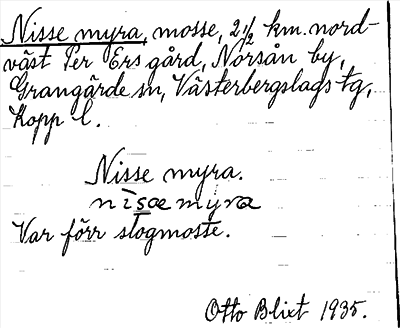 Nisse myra, mosse, 2½ km. nord-
väst Per Ers gård, Norsån by,
Grangärde sn, Västerbergslags tg,
Kopp l.
Nisse myra.
nisæ myra
Var förr slogmosse.
Otto Blixt 1935.